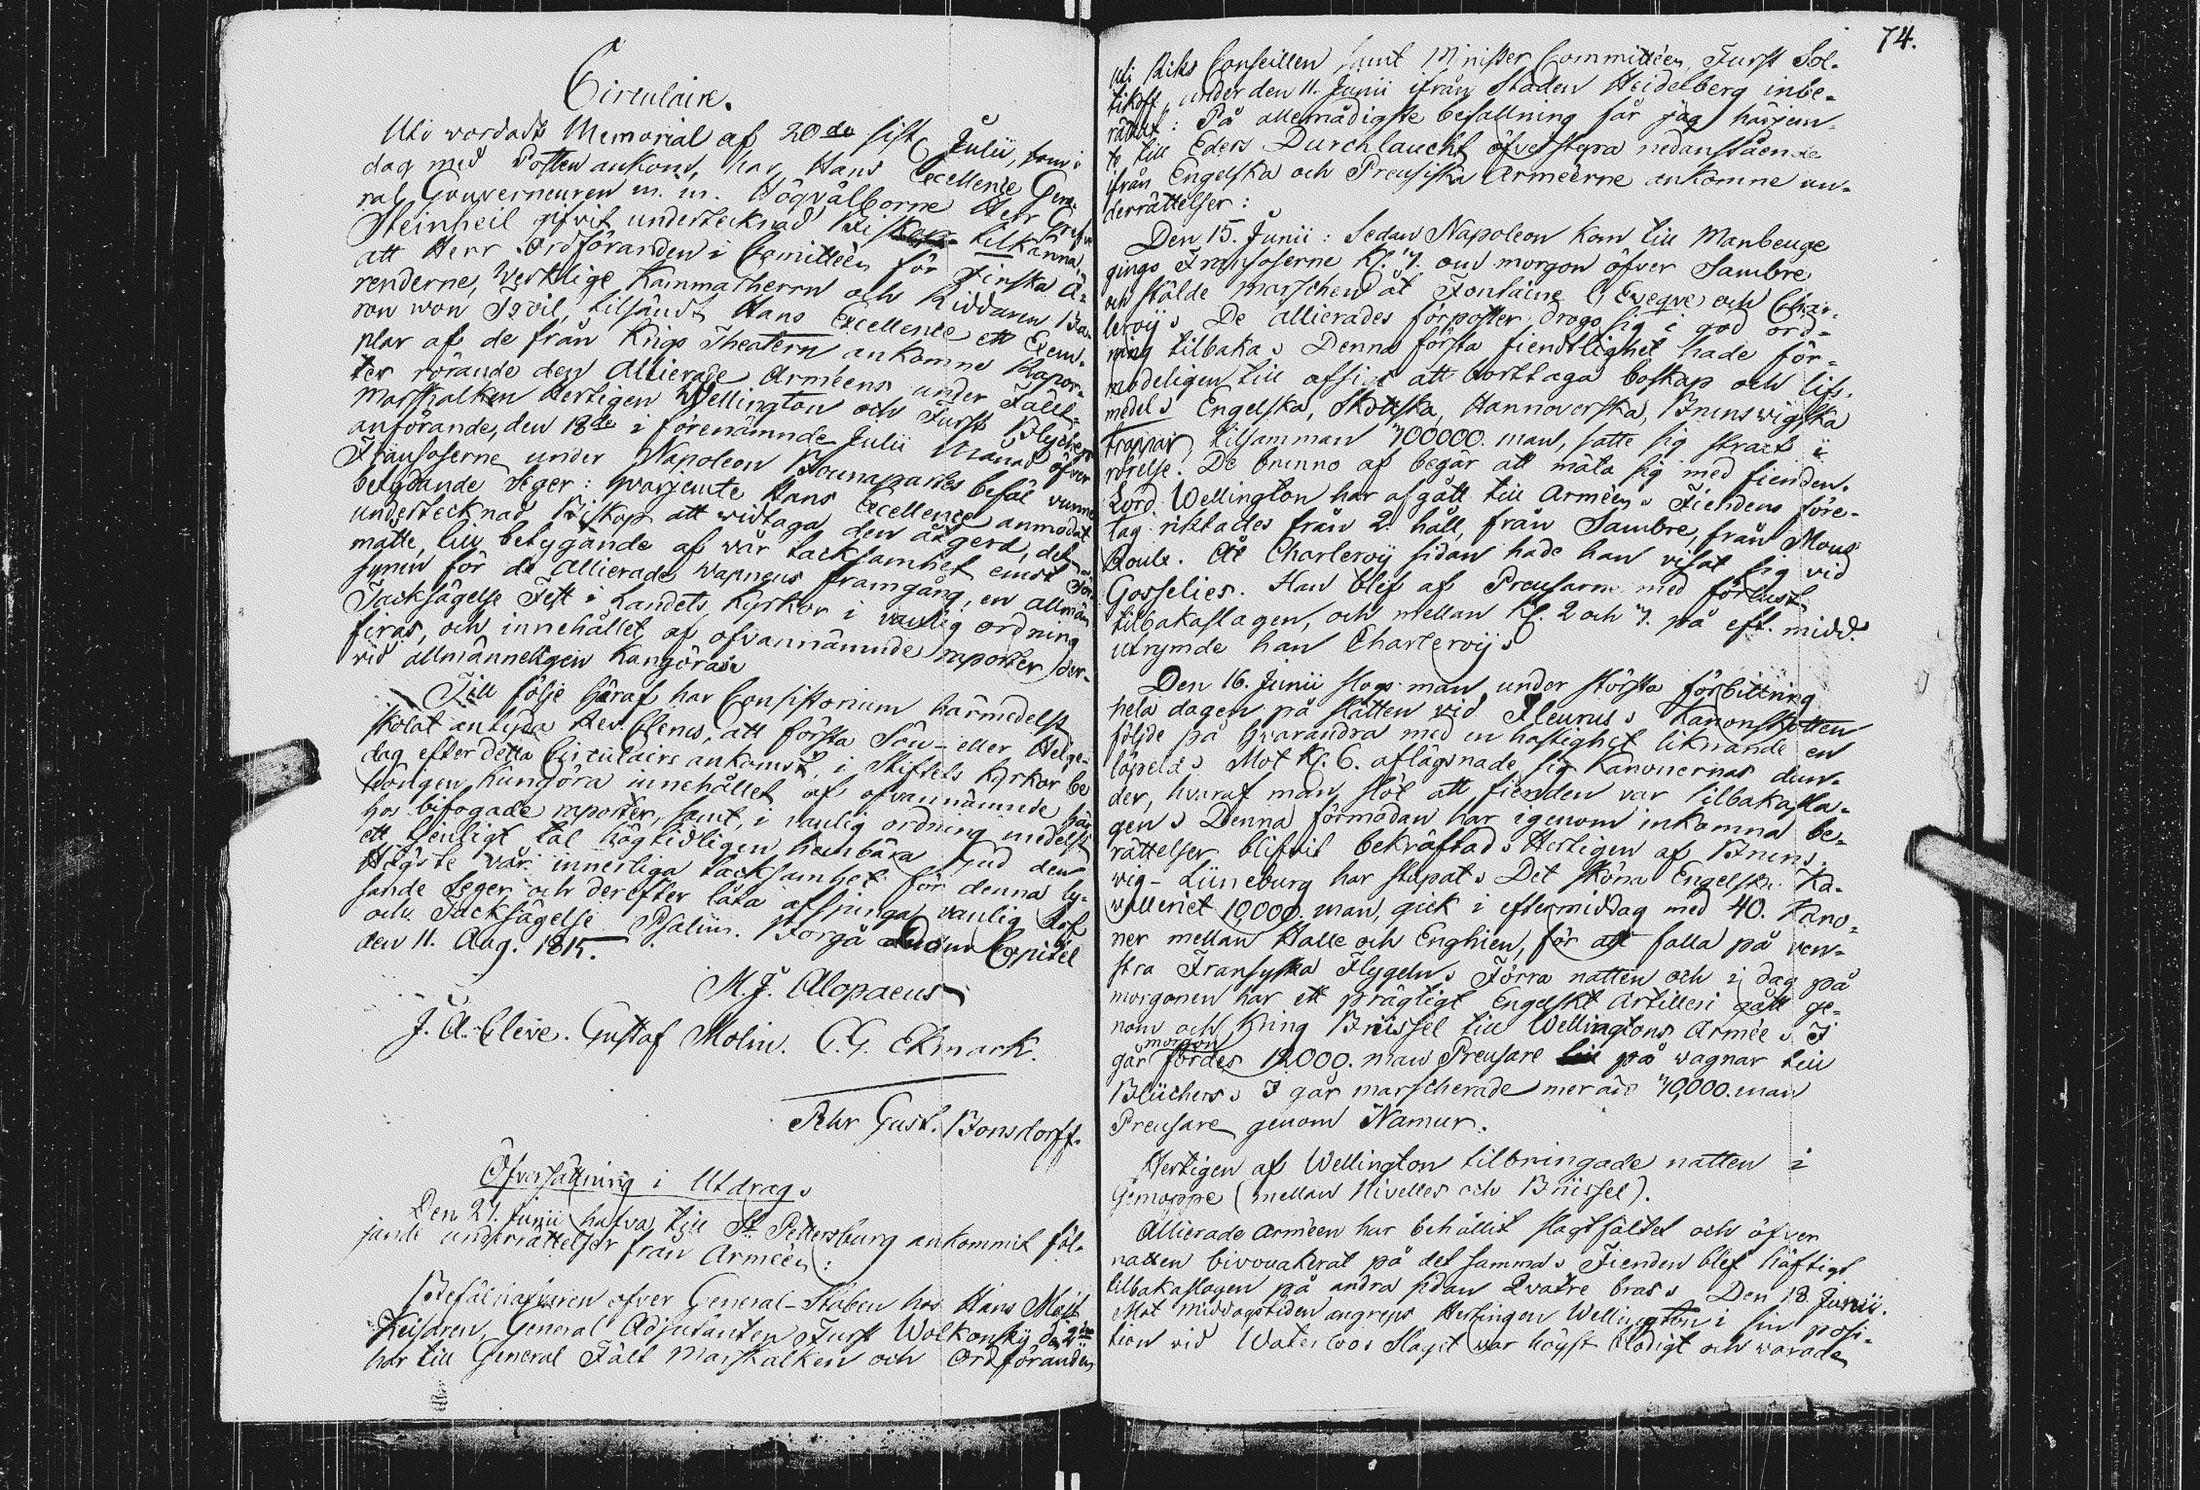 Circulaire.
Uti wördadt Memorial af 20de sistl. Julii, som i
dag med Posten ankom, har Hans Excellence Gene-
ral Gouverneuren m. m. Högvälborne Herr Grefve
Steinheil gifvit undertecknad Biskop tilkänna,
att Herr Ordföranden i Comitteèn för Finska Ä-
renderne, Werklige Kammarherrn och Riddaren Ba-
ron von tilsändt Hans Excellence ett Exem-
plar af de från Krigs Theatern ankomne Rapor-
ter rörande den Allierade Arméens under Fält-
Marskalken Hertigen Wellington och Furst Blychers
anförande, den 18de i förenämnde Julii Månad öfver
Fransoserne under Napoleon Bounapartes befäl vunne
betydande Seger: hvarjemte Hans Excellence anmodat
undertecknad Biskop att vidtaga den åtgerd, det
måtte, till betygande af vår tacksamhet emot För-
synen för de Allierade wapnens framgång, en allmän
Tacksägelse Fest i Landets Kyrkor i vanlig ordning
firas, och innehållet af ofvannämnde raporter der-
vid allmänneligen kungöras.
Till följe häraf har Consistorium härmedelst
skolat antyda Rev. Clerus, att första Sön- eller Helge-
dag efter detta Circulairs ankomst, i Stiftets Kyrkor be-
hörigen kungöra innehållet af ofvannämnde här
hos bifogade raporter, samt, i vanlig ordning medelst
ett tjenligt tal högtidligen hembära Gud den
Högste vår innerliga tacksamhet för denna ly-
sande Seger och derefter låta afsjunga vanlig Lof
och Tacksägelse Psalm. Borgå Dom Capitel
den 11. Aug. 1815.
M. J. Alopaeus
J. A. Cleve. Gustaf Molin. C. G. Ekmark.
Pehr Gust. Bonsdorff.
Öfversättning i Utdrag.
Den 27. Junii hafva till St. Pettersburg ankommit föl-
jande underrättelser från Arméen:
Befälhafvaren öfver General-Staben hos Hans Majst.
Keisaren, General Adjutanten Furst Wolkonsky
har till General Fält Marskalken och Ordföranden
74.
uti Riks Conseillen samt Minister Committéen, Furst Sol-
tikoff, under den 11. Junii ifrån Staden Heidelberg inbe-
rättat: På allernådigste befallning får jag härjem-
te till Eders Durchlaucht öfverstyra nedanstående
ifrån Engelska och Preusiska Arméerne ankomne un-
derrättelser:
Den 15. Junii: Sedan Napoleon kom till Manbeuge
gingo Fransoserne Kl. 4. om morgon öfver Sambre
och stälde marschen åt Fontaine l'Eveque och Char-
leroy. De allierades förposter drogo sig i god ord-
ning tilbaka. Denna första fiendtlighet hade för-
modeligen till afsigt att borttaga boskap och lifs-
medel. Engelska, Skottska, Hannoverska, Brunswigska
trappar tilsamman 100000. man, satte sig strax i
rörelse. De brunno af begär att mäta sig med fienden.
Lord Wellington har afgått till Arméen. Fiendens före-
tag riktades från 2. håll, från Sambre, från Mons
Roule. Åt Charleroy sidan hade han visat sig vid
Gosselies. Han blef af Preusarne med förlust
tilbakaslagen, och mellan Kl. 2 och 4. på eft. midd.
utrymde han Charleroy.
Den 16. Junii slogs man under största förbittring
hela dagen på slätten vid Fleurus. Kanonskotten
följde på hvarandra med en hastighet liknande en
löpeld. Mot Kl. 6. aflägsnade sig Kanonernas dun-
der, hvaraf man slöt att fienden var tilbakasla-
gen. Denna förmodan har igenom inkomna be-
rättelser blifvit bekräftad. Hertigen af Bruns-
wig-Lüneburg har stupat. Det sköna Engelska Ka-
valleriet 10,000. man, gick i eftermiddag med 40. Kano-
ner mellan Halle och Enghien, för att falla på ven-
stra Fransyska Flygeln. Förra natten och i dag på
morgonen har ett prägtigt Engelskt Artilleri gått ge-
nom och kring Brüssel till Wellingtons Armée. I
går morgon fördes 12000. man Preusare på wagnar till
Blücher. I går marscherade mer än 40,000. man
Preusare genom Namur.
Hertigen af Wellington tilbringade natten i
Gemappe (mellan Nivelles och Brüssel).
Allierade Arméen har behållit slagtfältet och öfver
natten bivouakerat på det samma. Fienden blef häftigt
tilbakaslagen på andra sidan Qvatre bras. Den 18. Junii.
Mot middagstiden angreps Hertingen Wellington i sin posi-
tion vid Waterloo. Slaget war högst blodigt och warade